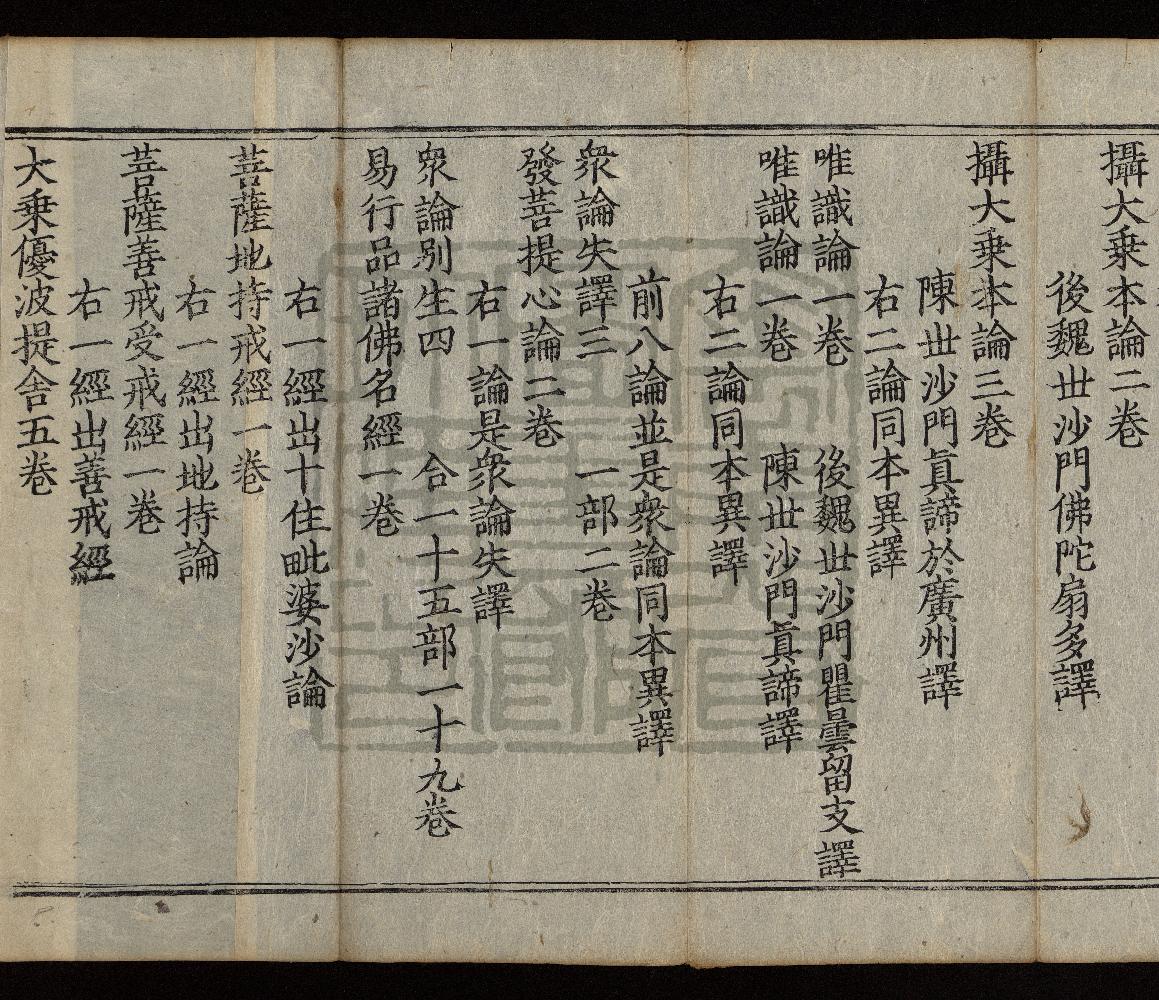 攝大乗本論二卷
後魏世沙門佛陀扇多譯
攝大乗本論三卷
陳世沙門真諦於廣州譯
右二論同本異譯
唯識論一卷　後魏世沙門瞿曇留支譯
唯識論一卷　陳世沙門真諦譯
右二論同本異譯
前八論並是衆論同本異譯
衆論失譯三　一部二卷
發菩提心論二卷
右一論是衆論失譯
衆論别生四　合一十五部一十九卷
易行品諸佛名經一卷
右一經出十住毗婆沙論
菩薩地持戒經一卷
右一經出地持論
菩薩善戒受戒經一卷
右一經出善戒經
大乗優波提舍五卷